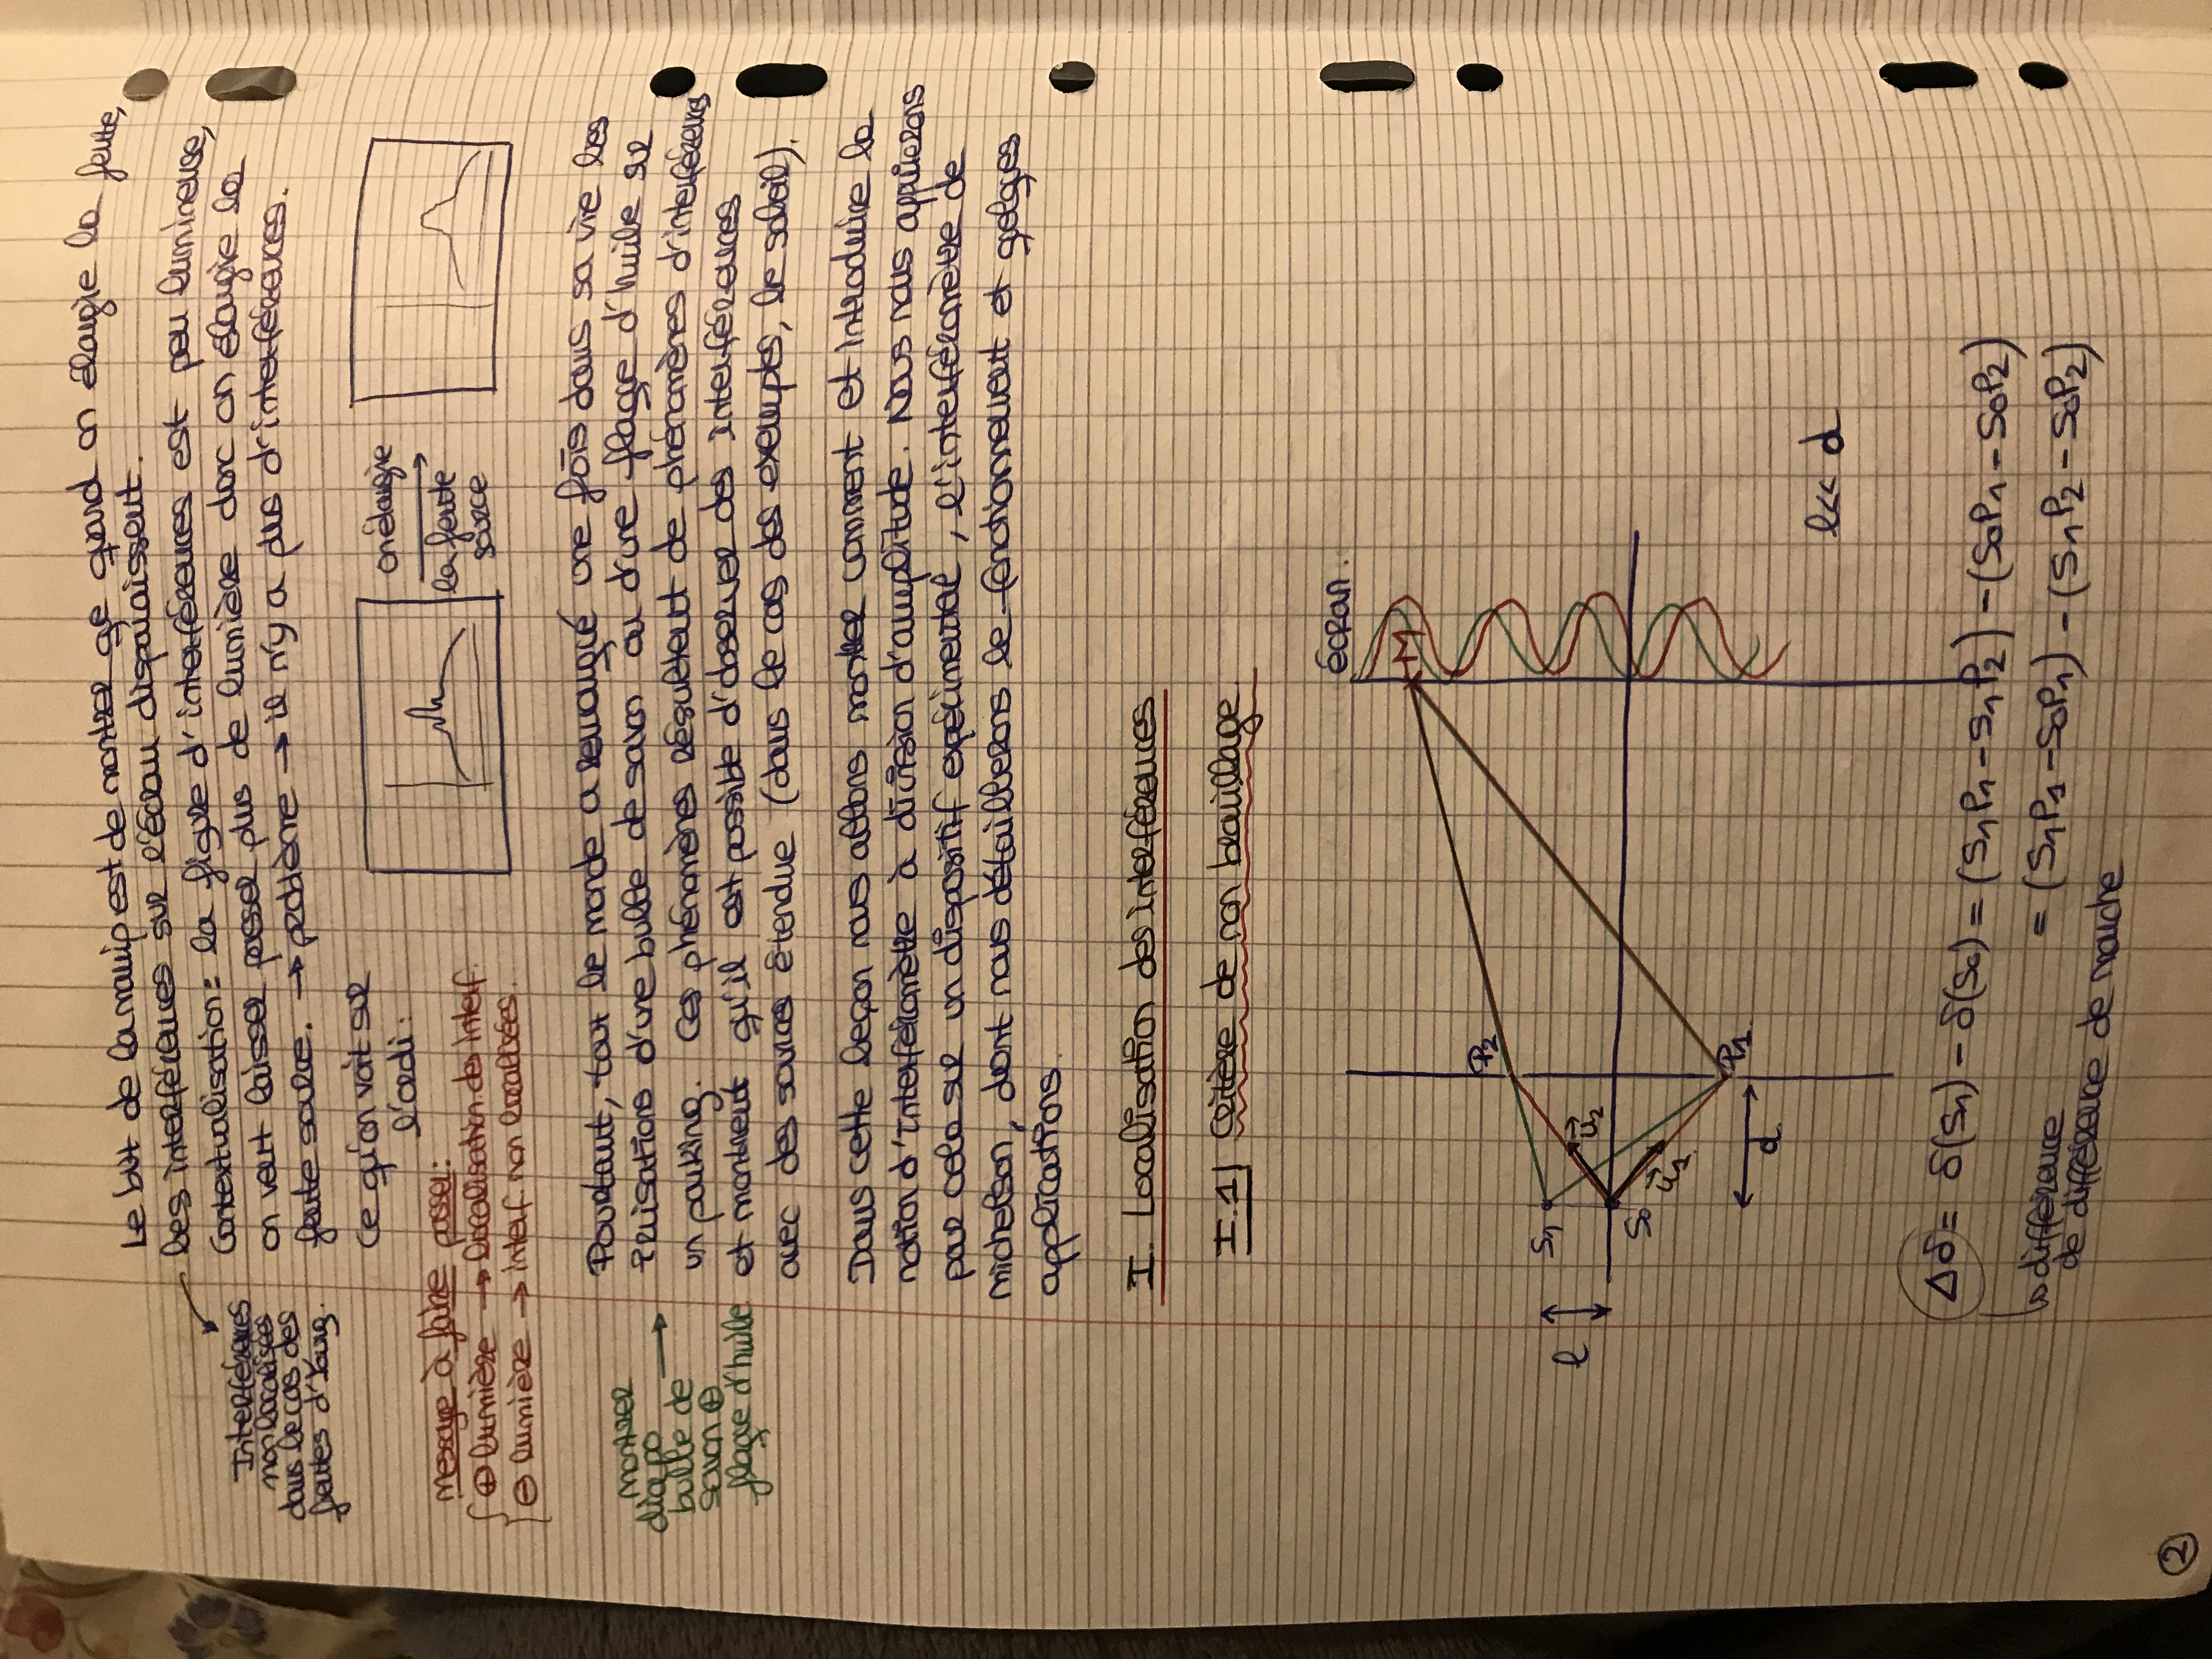 Le but de la manip est de montrer qe quand on élargie la fente,
les interférences sur l'écran disparaissent.
Contextualisation : la figure d'interférences est peu lumineuse,
on veut laisser passer plus de lumière donc on élargie la
fente source. → problème → il n'y a plus d'interférences.
Interférences
non localisées
dans le cas des
fentes d'Young.
Ce qu'on voit sur
l'ordi :
on élargie
la fente
source
message à faire passer :
⊕ lumière → localisation des interf.
⊖ lumière → interf non localisées.
Pourtant, tout le monde a remarqué une fois dans sa vie les
irisations d'une bulle de savon ou d'une flaque d'huile sur
un parking. Ces phénomènes résultent de phénomènes d'interférences
et montrent qu'il est possible d'observer des interférences
avec des sources étendue (dans le cas des exemples, le soleil).
montrer
diapo
bulle de
savon ⊕
flaque d'huile
Dans cette leçon nous allons montrer comment et introduire la
notion d'interféromètre à division d'amplitude. Nous nous appuierons
pour cela sur un dispositif expérimental, l'interféromètre de
michelson, dont nous détaillerons le fonctionnement et qelqes
applications.
I. Localisation des interférences
I.1) Critère de non brouillage
écran.
M
P₂
S₁
l
u⃗₂
S₀
u⃗₁
P₁
d
l << d
Δδ = δ(S₁) - δ(S₀) = (S₁P₁ - S₁P₂) - (S₀P₁ - S₀P₂)
= (S₁P₁ - S₀P₁) - (S₁P₂ - S₀P₂)
↳ différence
de différence de marche
2